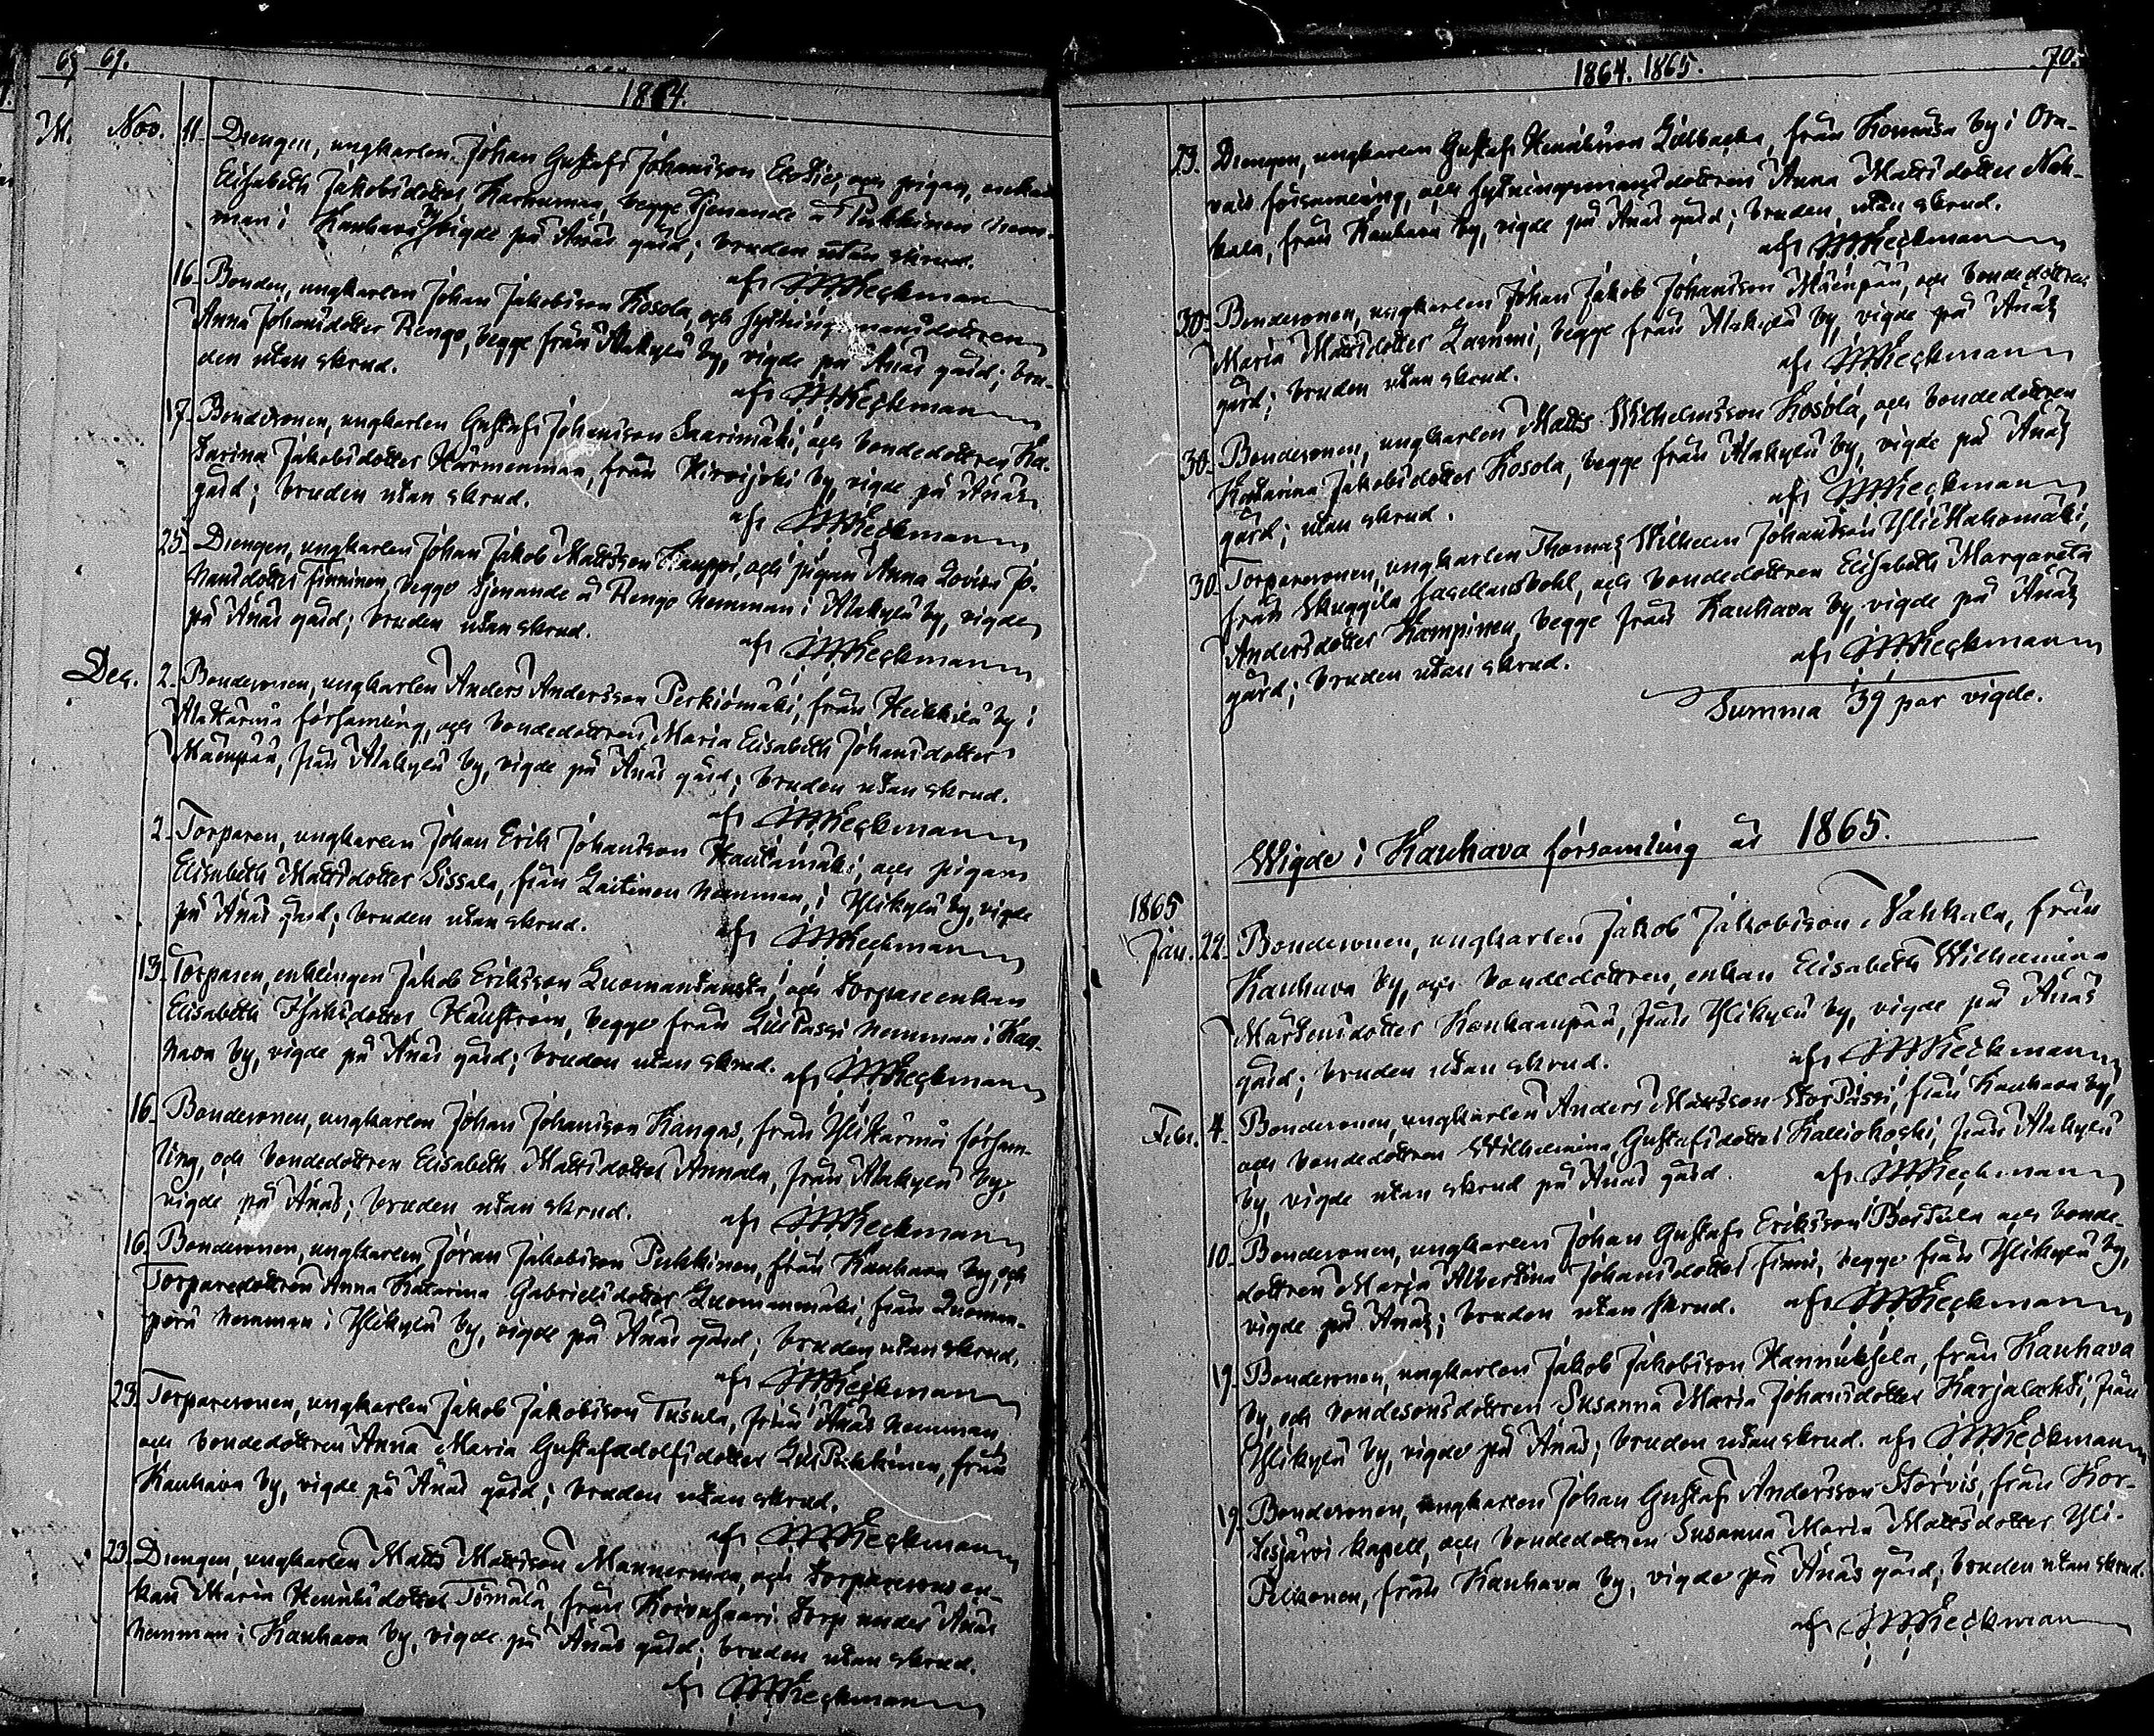 69.
1864.
Nov. 11. Drengen, ungkarlen Johan Gustaf Johansson och pigan, enkan
Elisabeth Jakobsdotter Karhumaa, begge tjenande å Pukkinen hem-
man i Kauhava by, vigde på Ånäs gård; bruden utan skrud.
af Heckmann
16. Bonden, ungkarlen Johan Jakobsson Kosola, och sytningsmansdottren
Anna Johansdotter Rengo, begge från Alakylä by, vigde på Ånäs gård; bru-
den utan skrud.
af Heckmann
17. Bondesonen, ungkarlen Gustaf Johansson Saarimäki, och bondedottren Ka-
tarina Jakobsdotter Härmenmaa, från Hirvijoki by, vigde på Ånäs
gård; bruden utan skrud.
af Heckmann
25. Drengen, ungkarlen Johan Jakob Mattsson Kauppi, och pigan Anna Lovisa Jo-
hansdotter Finninen, begge tjenande å Rengo hemman i Alakylä by, vigde
på Ånäs gård; bruden utan skrud.
af Heckmann
Dec. 2. Bondesonen, ungkarlen Anders Andersson Perkiömäki, från Heikkilä by i
Alahärmä församling, och bondedottren Maria Elisabeth Johansdotter
Mäenpää, från Alakylä by, vigde på Ånäs gård; bruden utan skrud.
af Heckmann
2. Torparen, ungkarlen Johan Erik Johansson Hautamäki, och pigan
Elisabeth Mattsdotter Sissala, från Laitinen hemman, i Ylikylä by, vigde
på Ånäs gård; bruden utan skrud.
af Heckmann
13. Torparen, enklingen Jakob Eriksson Luomansausta, och torpareenkan
Elisabeth Isaksdotter Hällström, begge från LillPassi hemman i Kau-
hava by, vigde på Ånäs gård; bruden utan skrud. af Heckmann
16. Bondesonen, ungkarlen Johan Johansson Kangas, från Ylihärmä försam-
ling, och bondedottren Elisabeth Mattsdotter Annala, från Alakylä by,
vigde på Ånäs; bruden utan skrud.
af Heckmann
16. Bondesonen, ungkarlen Jöran Jakobsson Pukkinen, från Kauhava by, och
Torparedottren Anna Katarina Gabrielsdotter Luomanmäki, från Luoman-
perä hemman i Ylikylä by, vigde på Ånäs gård; bruden utan skrud.
af Heckmann
23. Torparesonen, ungkarlen Jakob Jakobsson Tusula, från Ånäs hemman
och bondedottren Anna Maria Gustafadolfsdotter LillPukkinen, från
Kauhava by, vigde på Ånäs gård; bruden utan skrud.
af Heckmann
23. Drengen, ungkarlen Matts Mattsson Mannermaa, och torparesonsen-
kan Maria Henriksdotter Tömälä, från Koivusaari torp under Ånäs
hemman i Kauhava by, vigde på Ånäs gård; bruden utan skrud.
af Heckmann
1864. 1865.
70.
23. Drengen, ungkarlen Gustaf Henriksson Lillbacka, från Kouvusa by i Ora-
vais församling, och sytningsmansdottren Anna Mattsdotter Nah-
kala, från Kauhava by, vigde på Ånäs gård; bruden utan skrud.
af Heckmann
30. Bondesonen, ungkarlen Johan Jakob Johansson Mäenpää, och bondedottren
Maria Mattsdotter Lammi, begge från Alakylä by, vigde på Ånäs
gård; bruden utan skrud.
af Heckmann
30. Bondesonen, ungkarlen Matts Wilhelmsson Kosola, och bondedottren
Katarina Jakobsdotter Kosola, begge från Alakylä by, vigde på Ånäs
gård; utan skrud.
af Heckmann
30. Torparesonen, ungkarlen Thomas Wilhelm Johansson YliHakomäki,
från Skuggila, och bondedottren Elisabeth Margareta
Andersdotter Kampinen, begge från Kauhava by, vigde på Ånäs
gård; bruden utan skrud.
af Heckmann
Summa 39 par vigde.
Wigde i Kauhava församling år 1865.
1865
Jan. 22. Bondesonen, ungkarlen Jakob Jakobsson Nahkala, från
Kauhava by, och bondedottren, enkan Elisabeth Wilhelmina
Mårtensdotter Kenkaanpää, från Ylikylä by, vigde på Ånäs
gård; bruden utan skrud.
af Heckmann
Febr. 4. Bondesonen, ungkarlen Anders Mattsson StorPassi, från Kauhava by,
och bondedottren Wilhelmina Gustafsdotter Kalliokoski, från Alakylä
by, vigde utan skrud på Ånäs gård.
af Heckmann
10. Bondesonen, ungkarlen Johan Gustaf Eriksson Perttula och bonde-
dottren Marja Albertina Johansdotter Finni, begge från Ylikylä by,
vigde på Ånäs; bruden utan skrud. af Heckmann
19. Bondesonen, ungkarlen Jakob Jakobsson Hannuksela, från Kauhava
by, och bondesonsdottren Susanna Maria Johansdotter Karjalahti, från
Ylikylä by, vigde på Ånäs; bruden utan skrud. af Heckmann
19. Bondesonen, ungkarlen Johan Gustaf Andersson Storvis, från Kor-
tesjärvi kapell, och bondedottren Susanna Maria Mattsdotter Yli-
Pelkonen, från Kauhava by, vigde på Ånäs gård; bruden utan skrud.
af Heckmann